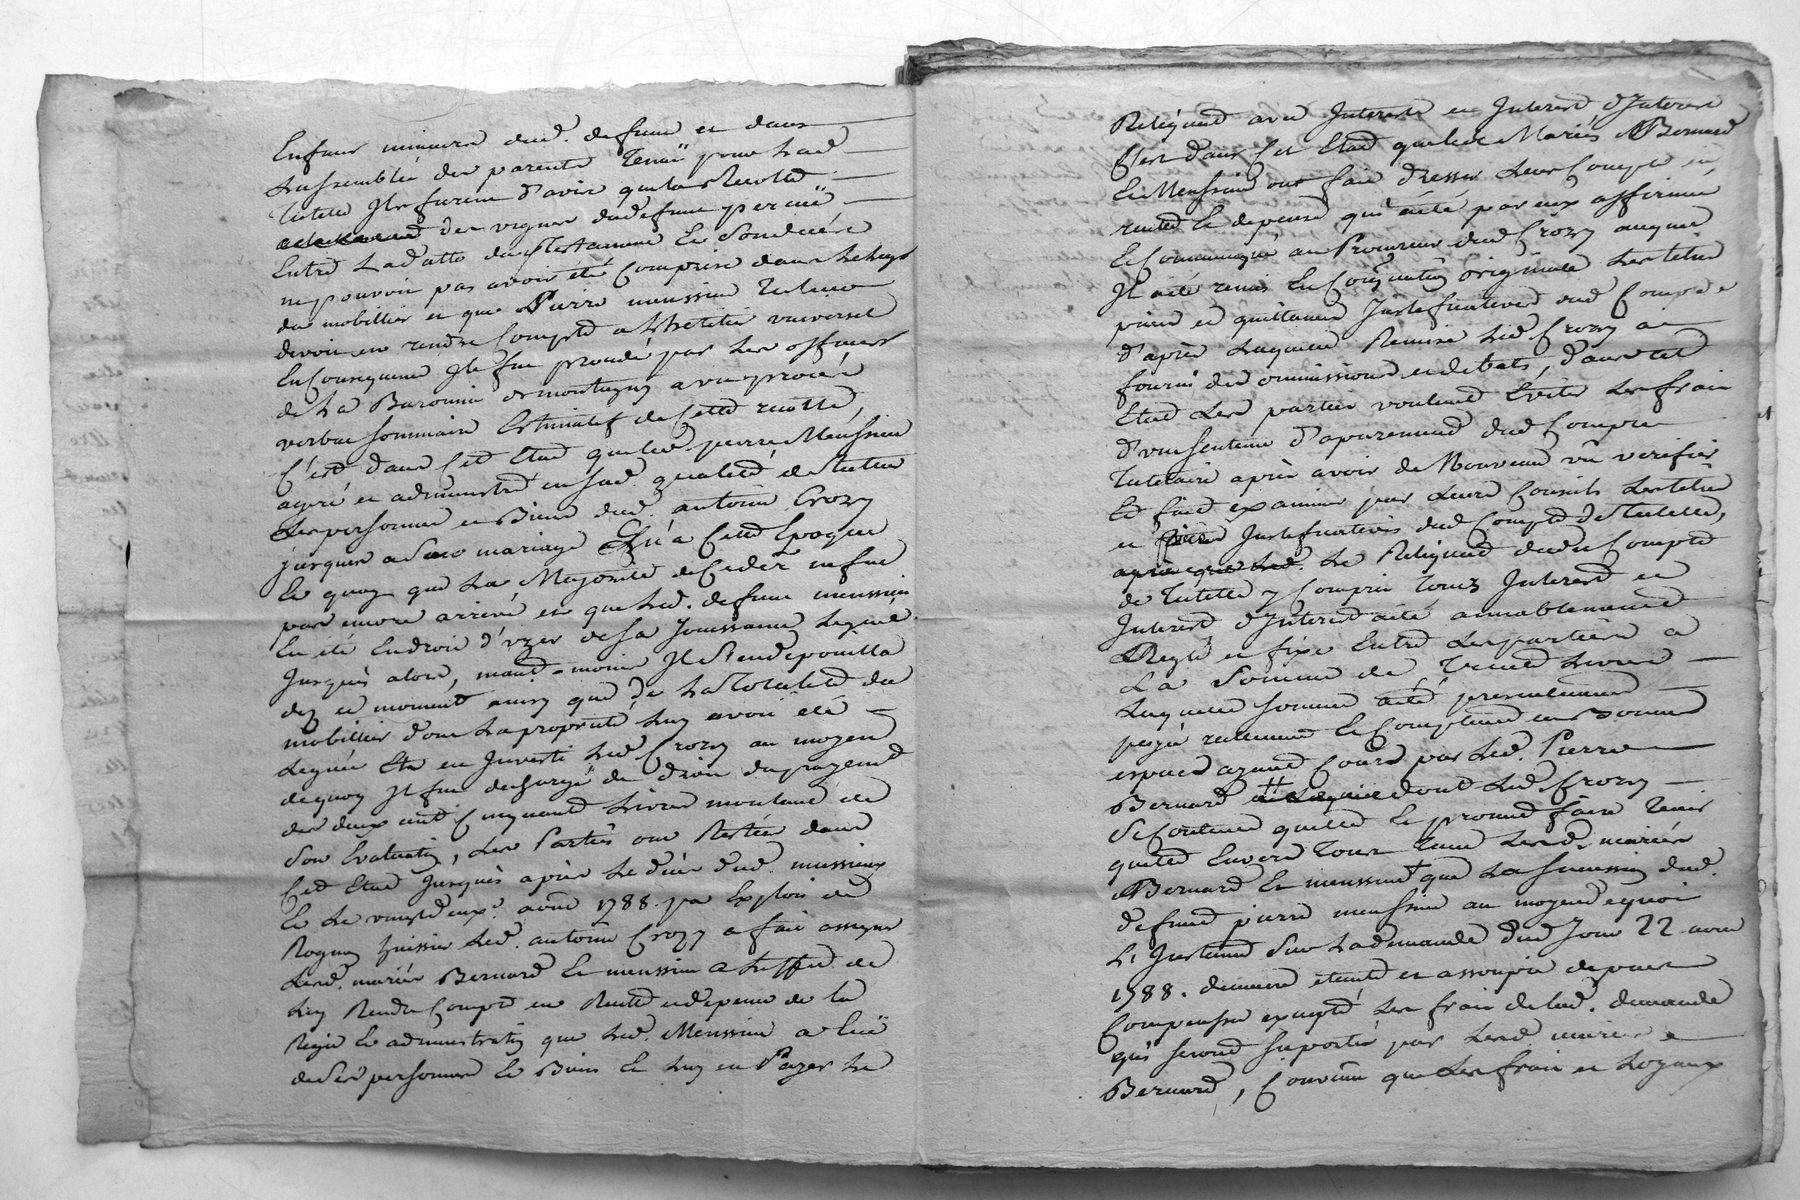 Enfans mineurs dud. defunt et dans
Lassemblée des parents Tenuë pour Lad.
tutelle Ils furent d'avis que la Recolte
des vignes dud defunt perçuë
Entre La datte du Testament et Son decés
ne pouvoit pas avoir été Comprise dans Le legs
du mobillier et que Pierre meussieu tuteur
devoit en rendre Compte a Lheritier universel
En Consequence Il fut procedé par Les officiers
de La Baronnie de montagny a un procés
verbal sommaire Estimatif de Cette recolte,
C'est dans Cet Etat que led. pierre Meussieu
a geré et administré en sad. qualité de tuteur
Les personne et Biens dud. antoine Crozy
jusques a Son mariage Qu'a Cette Epoque
Et quoy que La Majorité de Ce dernier ne fut
pas encore arrivé et que Led. defunt meussieu
Eu été Endroit d'uzer de sa Jouissance Leguée
Jusqu'à alors, neant-moins Il s'en depouilla
dez ce moment ainsy que de La Totalité du
mobillier dont La proprieté Luy avoit été
Leguée Et en Investi Led Crozy au moyen
de quoy Il fut dechargé de droit du payement
des deux cent Cinquante Livres montant de
Son Evaluation, Les Parties ont Restées dans
Cet Etat Jusques après Le décés dud. meussieu
Et Le vingt deux avril 1788. par Exploit de
Rognon huissier Led. antoine Crozy a fait assigner
Lesd. mariés Bernard Et meussieu a Leffet de
Luy Rendre Compte en Recette et depense de la
Regie Et administration que Led. Meussieu a euë
de Ses personne Et Biens Et Luy en Payer Le
Reliquat avec Interets et Interest d'Interest
C'est dans Cet Etat que Led. Mariés Bernard
Et Meussieu ont fait dresser Leur Compte en
recette Et depense qui a été par eux affirmé
Et Communiqué au Procureur dud Crozy auquel
Il a été remis En Communication originale Les titres
pieces et quittances Justificatives dud Compte
d'après Laquelle Remise Led Crozy a
fourni des ommissions et debats, dans Cet
Etat Les parties voulant Eviter Les frais
d'une sentence d'apurement dud Compte
Tutelaire après avoir de Nouveau vû verifier
Et fait examiner par Leurs Conseils Les titres
et pieces Justificatives dud Compte de tutelle,
Le Reliquat dud Compte
de tutelle y Compris tous Interest et
Interest d'Interest a été amiablement
Reglé et fixé Entre Les parties a
La Somme de Trente Livres
Laquelle somme a été presentement
payée reellement Et Comptant en bonnes
especes ayant Cours par Led. Pierre
Bernard dont Led Crozy
Se Contente quitte Et promet faire tenir
quitte Envers tous tant Lesd. mariés
Bernard Et meussieu que La succession dud.
defunt pierre meussieu au moyen de quoi
L'Instance Sur La demande dud Jour 22 avril
1788. demeure eteinte et assoupie depens
Compensés excepté Les frais de lad. demande
qui seront suportés par Lesd. mariés
Bernard, Convenu que Les frais et Loyaux